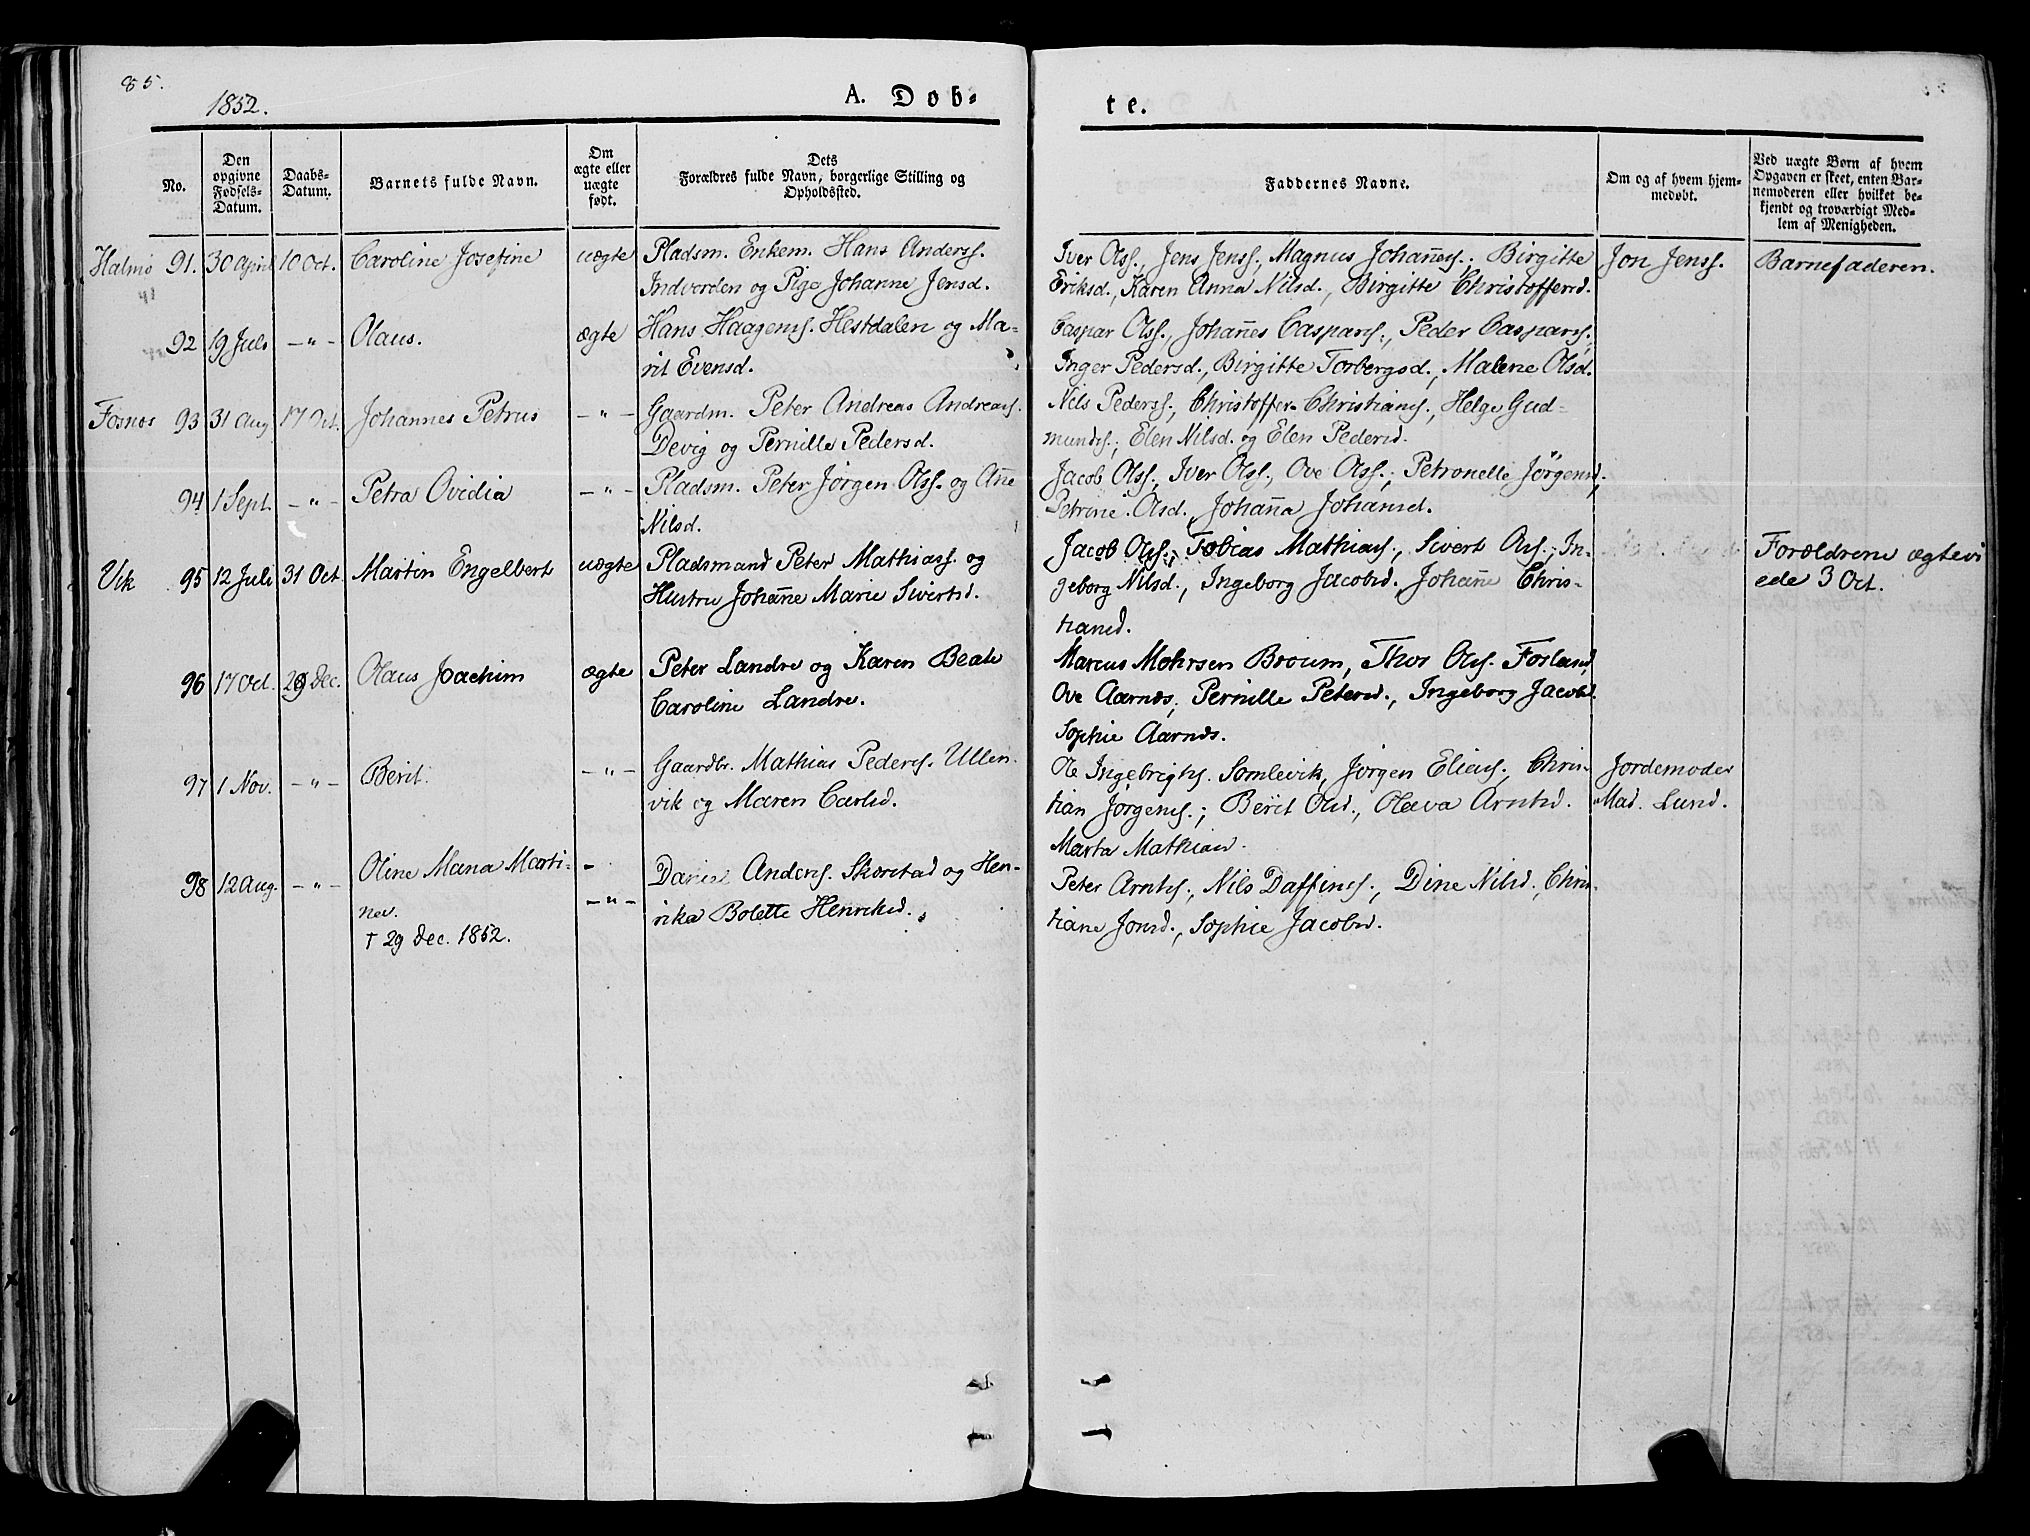 85.
1852.
A. Dob-
te.
No.
Den opgivne Fødsels-Datum.
Daabs-Datum.
Barnets fulde Navn.
Om ægte eller uægte født.
Dets Forældres fulde Navn, borgerlige Stilling og Opholdssted.
Faddernes Navne.
Om og af hvem hjem-medøbt.
Ved uægte Børn af hvem Opgaven er skeet, enten Bar-nemoderen eller hvilket be-kjendt og troværdigt Med-lem af Menigheden.
Halmø 91. 30 April 10 Oct. Caroline Josefine uægte Pladsm. Enkem. Hans Anderss.
Indverden og Pige Johanne Jensd.
Iver Olss., Jens Jenss., Magnus Johañess.; Birgitte
Eriksd., Karen Anna Nilsd., Birgitte Christoffersd.
Jon Jenss.
Barnefaderen.
92 19 Juli -"- Olaus. ægte Hans Haagens. Hestdalen og Ma-
rit Evensd.
Caspar Olss., Johañes Caspars., Peder Caspars.,
Inger Pedersd., Birgitte Torbergsd., Malene Olsd.
Fosnæs 93 31 Aug 17 Oct. Johannes Petrus -"- Gaardm. Peter Andreas Andreass.
Devig og Pernille Pedersd.
Nils Pederss., Christoffer Christians., Helge Gud-
munds.; Elen Nilsd. og Elen Pedersd.
94 1 Sept. -"- Petra Ovidia -"- Pladsm. Peter Jørgen Olss. og Añe
Nilsd.
Jacob Olss., Iver Olss., Ove Olss.; Petronelle Jörgensd.,
Petrine Olsd., Johaña Johansd.
Vik 95 12 Juli 31 Oct Martin Engelbert uægte Pladsmand Peter Mathiass. og
Hustru Johañe Marie Sivertsd.
Jacob Olss., Tobias Mathiass., Sivert Ols.; In-
geborg Nilsd., Ingeborg Jacobsd., Johañe Chris-
tiansd.
Forældrene ægtevi
ede 3 Oct.
96 17 Oct. 29 Dec. Olaus Joachim ægte Peter Landre og Karen Beate
Caroline Landre.
Marcus Mohrsen Broum, Thor Olss. Forland,
Ove Aarnds, Pernille Petersd., Ingeborg Jacobsd.
Sophie Aarnds.
97 1 Nov. -"- Berit. -"- Gaardbr. Mathias Peders. Ullen-
vik og Maren Carlsd.
Ole Ingebrigts. Somlevik, Jörgen Elias., Chris-
tian Jørgens.; Berit Olsd., Oleva Arntsd.
Marta Mathiasd.
Jordemoder
Mad. Lund.
98 12 Aug. -"- Oline Mana Marti-
nev.
† 29 Dec. 1852.
-"- Daniel Anders. Skorstad og Hen-
rika Bolette Henriksd.
Peter Arnts., Nils Daffins., Dine Nilsd., Chris-
tiane Jonsd., Sophie Jacobsd.